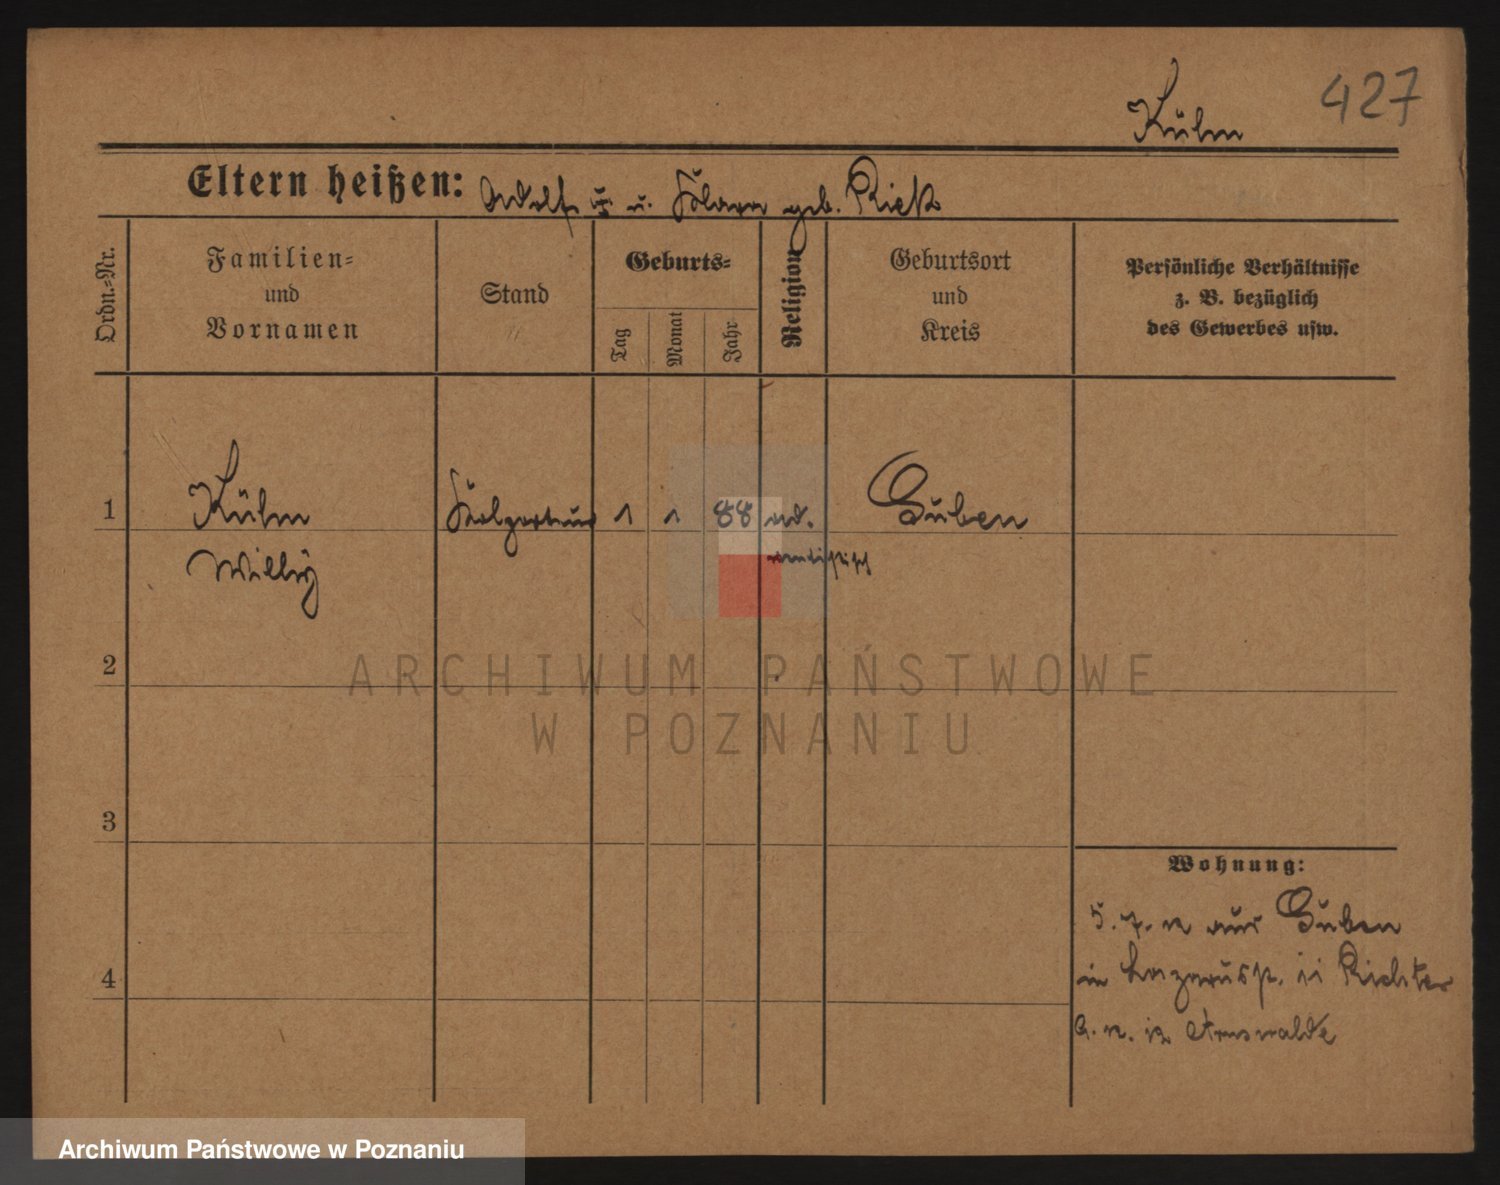 427
Kühn
Eltern heißen: Adolf u. Klara geb. Rick
Ordn.-Nr.
Familien-
und
Vornamen
Stand
Geburts-
Tag
Monat
Jahr
Religion
Geburtsort
und
Kreis
Persönliche Verhältnisse
z. B. bezüglich
des Gewerbes usw.
1
Kühn
1 1 88
Guben
Willy
2
ARCHIWUM PAŃSTWOWE
W POZNANIU
3
Wohnung:
5. 7. aus Guben
in Richter
4
Arnswalde
Archiwum Państwowe w Poznaniu